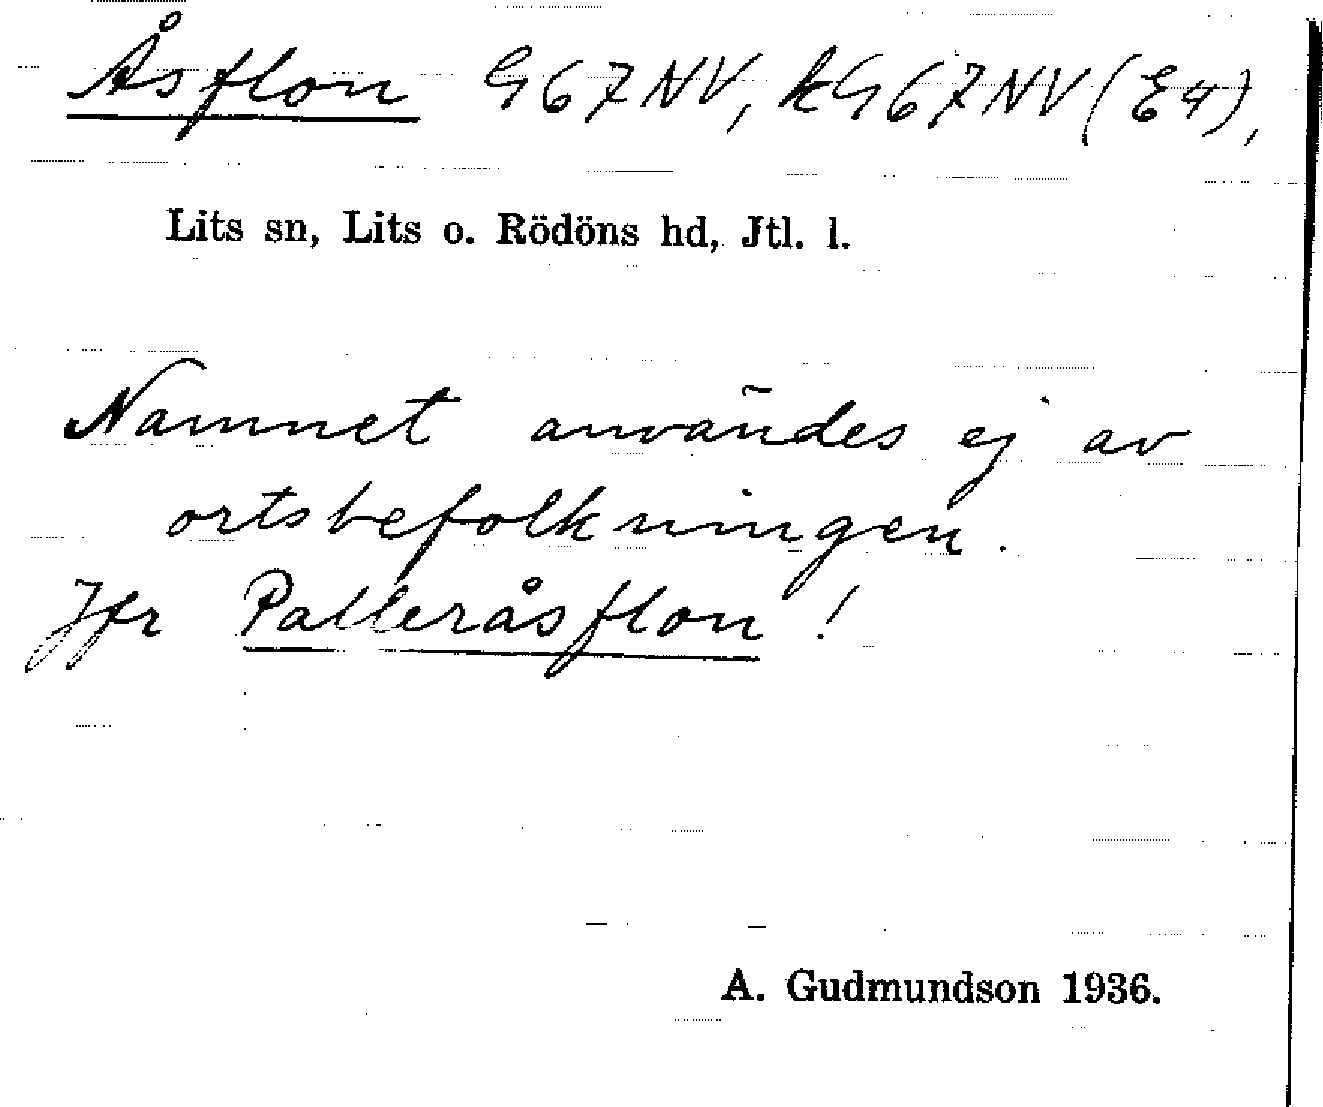 Åsflon G67NV, kG67NV (E4),
Lits sn, Lits o. Rödöns hd, Jtl. l.
Namnet användes ej av
ortsbefolkningen.
Jfr Palleråsflon!
A. Gudmundson 1936.